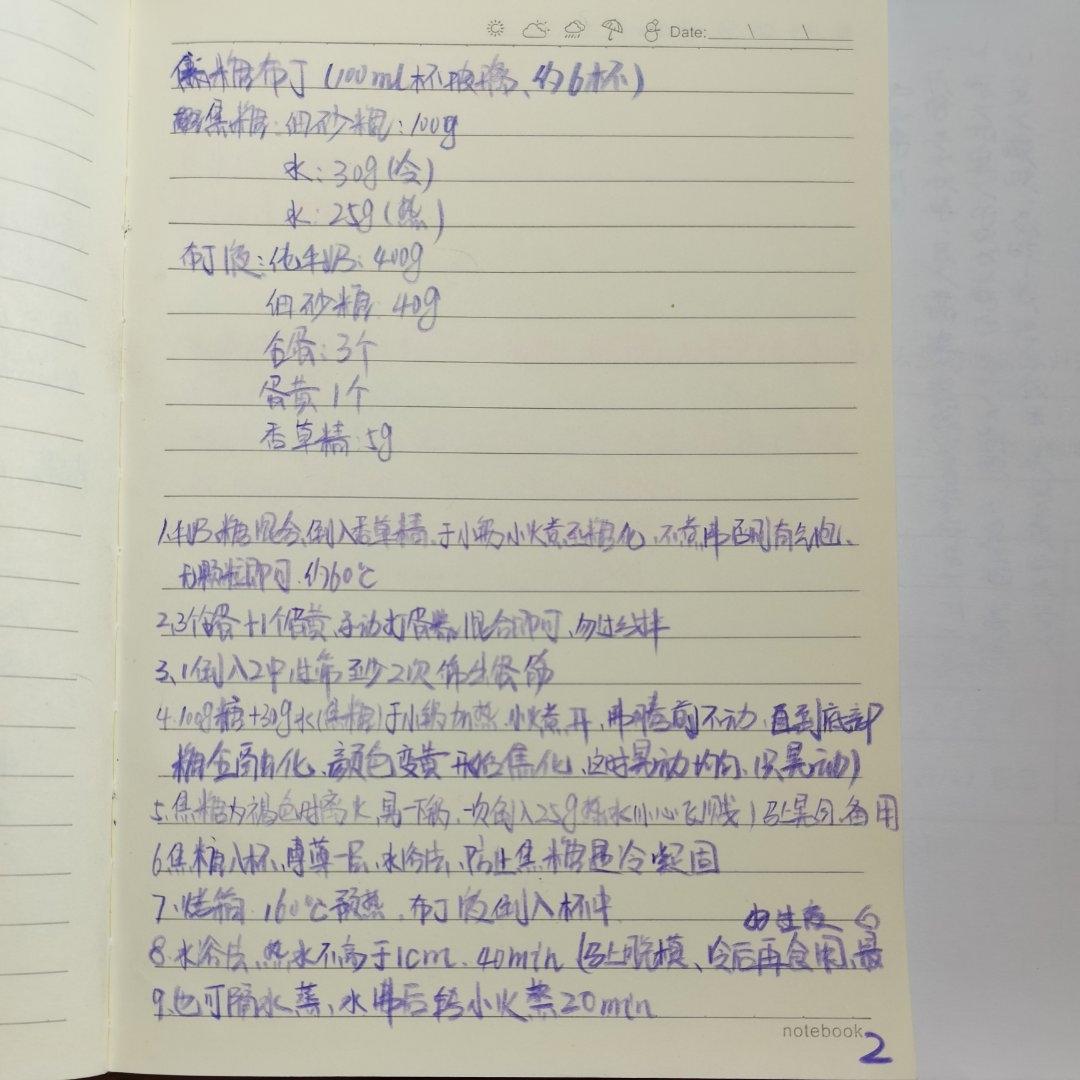 Date:
焦糖布丁(100ml杯玻璃、约6杯)
焦糖:细砂糖:100g
水:30g(冷)
水:25g(热)
布丁液:纯牛奶:400g
细砂糖:40g
全蛋:3个
蛋黄1个
香草精:5g
1.牛奶、糖混合,倒入香草精,于小锅小火煮至糖化,不煮沸否则有气泡、
无颗粒即可.约60℃
2.3个全蛋+1个蛋黄,手动打蛋器,混合即可,勿过分拌
3、1倒入2中过筛至少2次 筛出蛋筋
4.100g糖+30g水(焦糖)于小锅加热.小火煮开,沸腾前不动.直到底部
糖全面融化、颜色变黄开始焦化、这时晃动均匀.(只晃动)
5.焦糖为褐色时离火,晃一下锅,一次倒入25g热水(小心飞溅)马上晃匀.备用
6.焦糖入杯,薄薄一层,水浴法,防止焦糖遇冷凝固
7、烤箱 160℃预热,布丁液倒入杯中
8.水浴法,热水不高于1cm、40min(马上脱模、冷后再食用,最
9.也可隔水蒸,水沸后转小火蒸20min
notebook
2